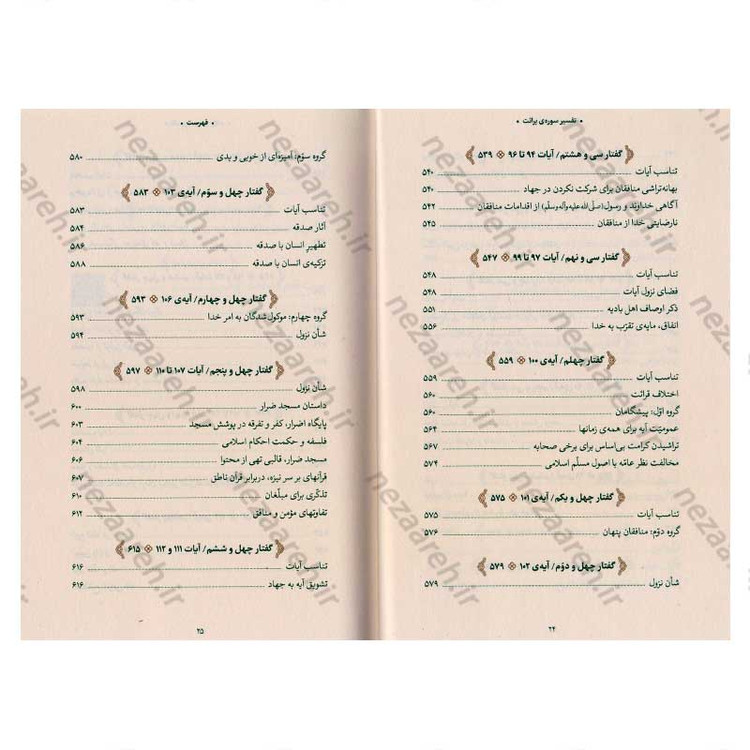 • تفسیر سوره‌ی برائت •
گفتار سی و هشتم/ آیات ۹۴ تا ۹۶ ۵۳۹
تناسب آیات ۵۴۰
بهانه‌تراشی منافقان برای شرکت نکردن در جهاد ۵۴۰
آگاهی خداوند و رسول(صلّی‌الله‌علیه‌وآله‌وسلّم) از اقدامات منافقان ۵۴۲
نارضایتی خدا از منافقان ۵۴۵
گفتار سی و نهم/ آیات ۹۷ تا ۹۹ ۵۴۷
تناسب آیات ۵۴۸
فضای نزول آیات ۵۴۸
ذکر اوصاف اهل بادیه ۵۵۱
انفاق، مایه‌ی تقرّب به خدا ۵۵۶
گفتار چهلم/ آیه‌ی ۱۰۰ ۵۵۹
تناسب آیات ۵۵۹
اختلاف قرائت ۵۶۰
گروه اوّل: پیشگامان ۵۶۰
عمومیّت آیه برای همه‌ی زمانها ۵۶۴
تراشیدن کرامت بی‌اساس برای برخی صحابه ۵۶۷
مخالفت نظر عامّه با اصول مسلّم اسلامی ۵۷۴
گفتار چهل و یکم/ آیه‌ی ۱۰۱ ۵۷۵
تناسب آیات ۵۷۵
گروه دوّم: منافقان پنهان ۵۷۶
گفتار چهل و دوّم/ آیه‌ی ۱۰۲ ۵۷۹
شأن نزول ۵۷۹
۲۴
• فهرست •
گروه سوّم: آمیزه‌ای از خوبی و بدی ۵۸۰
گفتار چهل و سوّم/ آیه‌ی ۱۰۳ ۵۸۳
تناسب آیات ۵۸۳
آثار صدقه ۵۸۴
تطهیر انسان با صدقه ۵۸۶
تزکیه‌ی انسان با صدقه ۵۸۸
گفتار چهل و چهارم/ آیه‌ی ۱۰۶ ۵۹۳
گروه چهارم: موکول‌شدگان به امر خدا ۵۹۳
شأن نزول ۵۹۴
گفتار چهل و پنجم/ آیات ۱۰۷ تا ۱۱۰ ۵۹۷
شأن نزول ۵۹۸
داستان مسجد ضرار ۶۰۰
پایگاه اضرار، کفر و تفرقه در پوشش مسجد ۶۰۳
فلسفه و حکمت احکام اسلامی ۶۰۴
مسجد ضرار، قالبی تهی از محتوا ۶۰۶
قرآنهای بر سر نیزه، دربرابر قرآن ناطق ۶۰۷
تذکّری برای مبلّغان ۶۱۰
تفاوتهای مؤمن و منافق ۶۱۲
گفتار چهل و ششم/ آیات ۱۱۱ و ۱۱۲ ۶۱۵
تناسب آیات ۶۱۶
تشویق آیه به جهاد ۶۱۶
۲۵
nezaareh.ir